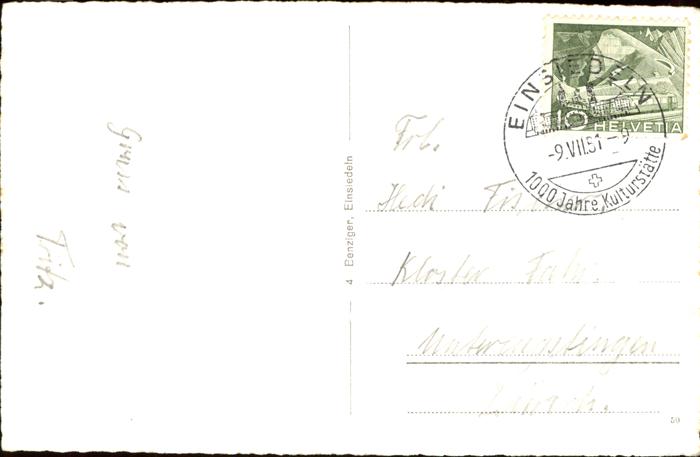 Gruss von
Fritz.
4 Benziger, Einsiedeln
EINSIEDELN
-9.VII.51-9
1000 Jahre Kulturstätte
10 HELVETIA
Frl.
Hedi
Kloster Fahr.
Unterengstringen
Zürich.
50